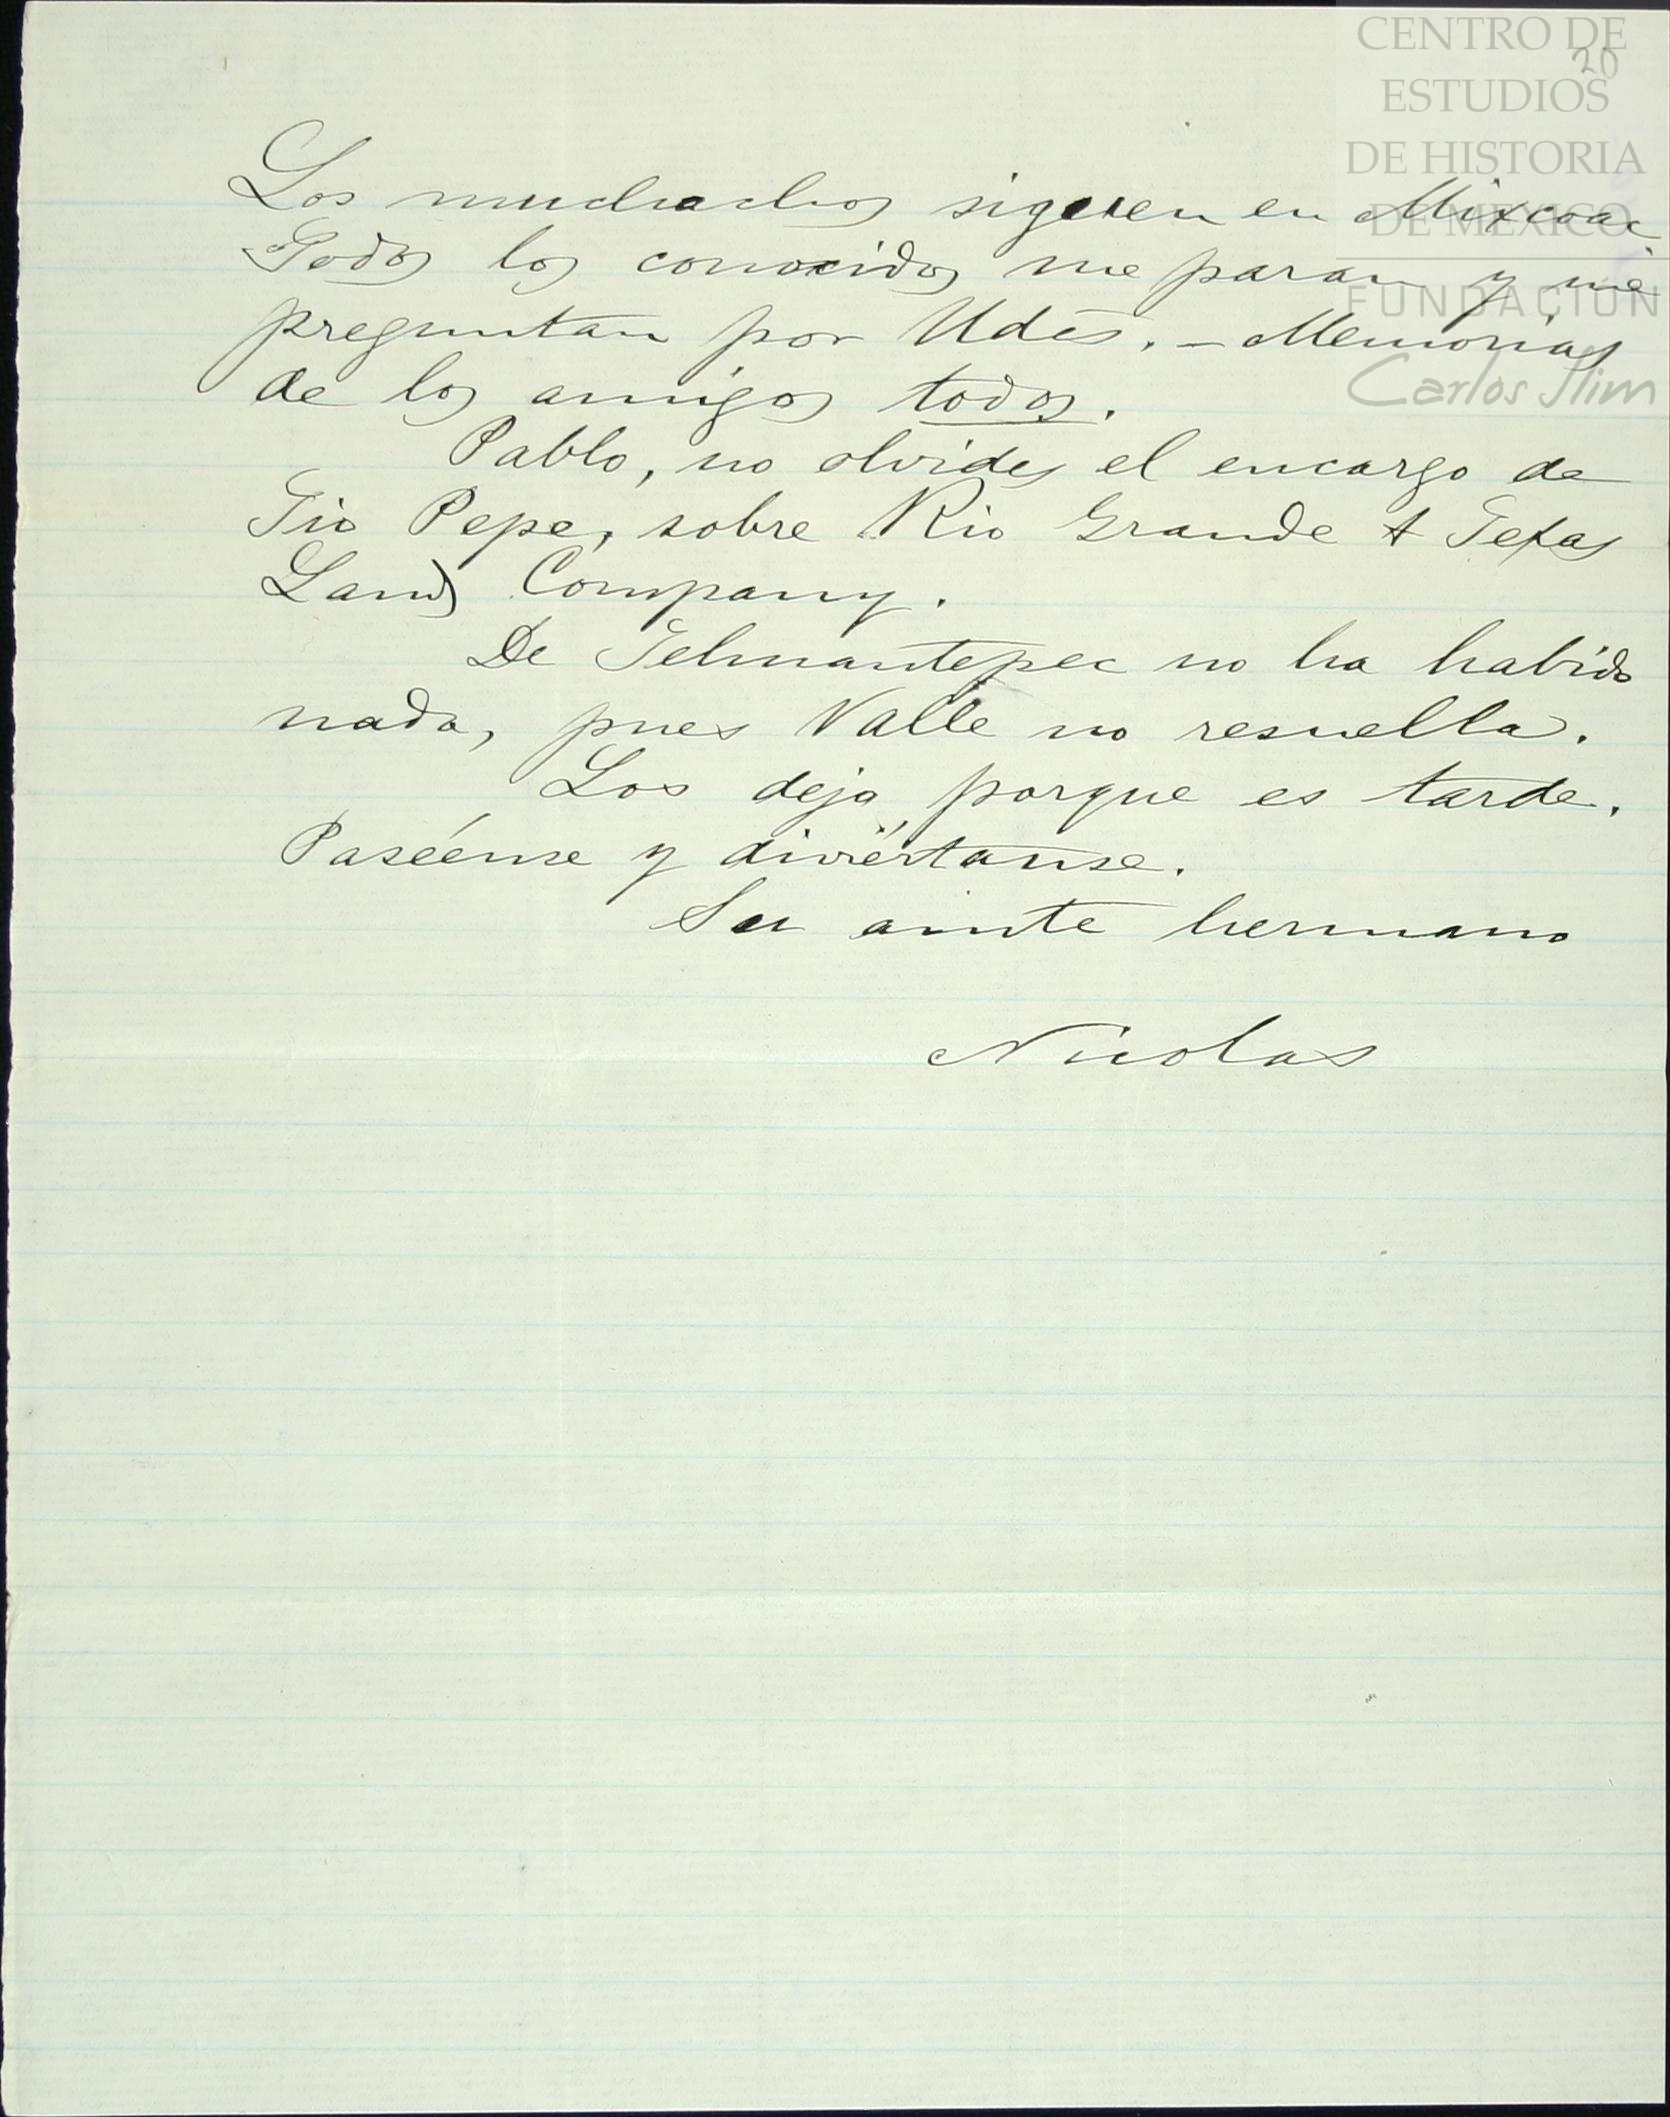 CENTRO DE
ESTUDIOS
DE HISTORIA
DE MÉXICO
FUNDACIÓN
Carlos Slim
20
Los muchachos siguen en Mixcoac
Todos los conocidos me paran y me
preguntan por Udes. – Memorias
de los amigos todos.
Pablo, no olvides el encargo de
Tio Pepe, sobre Rio Grande & Texas
Land Company.
De Tehuantepec no ha habido
nada, pues Valle no resuella.
Los deja, porque es tarde.
Paséense y diviértanse.
Su amte hermano
Nicolas